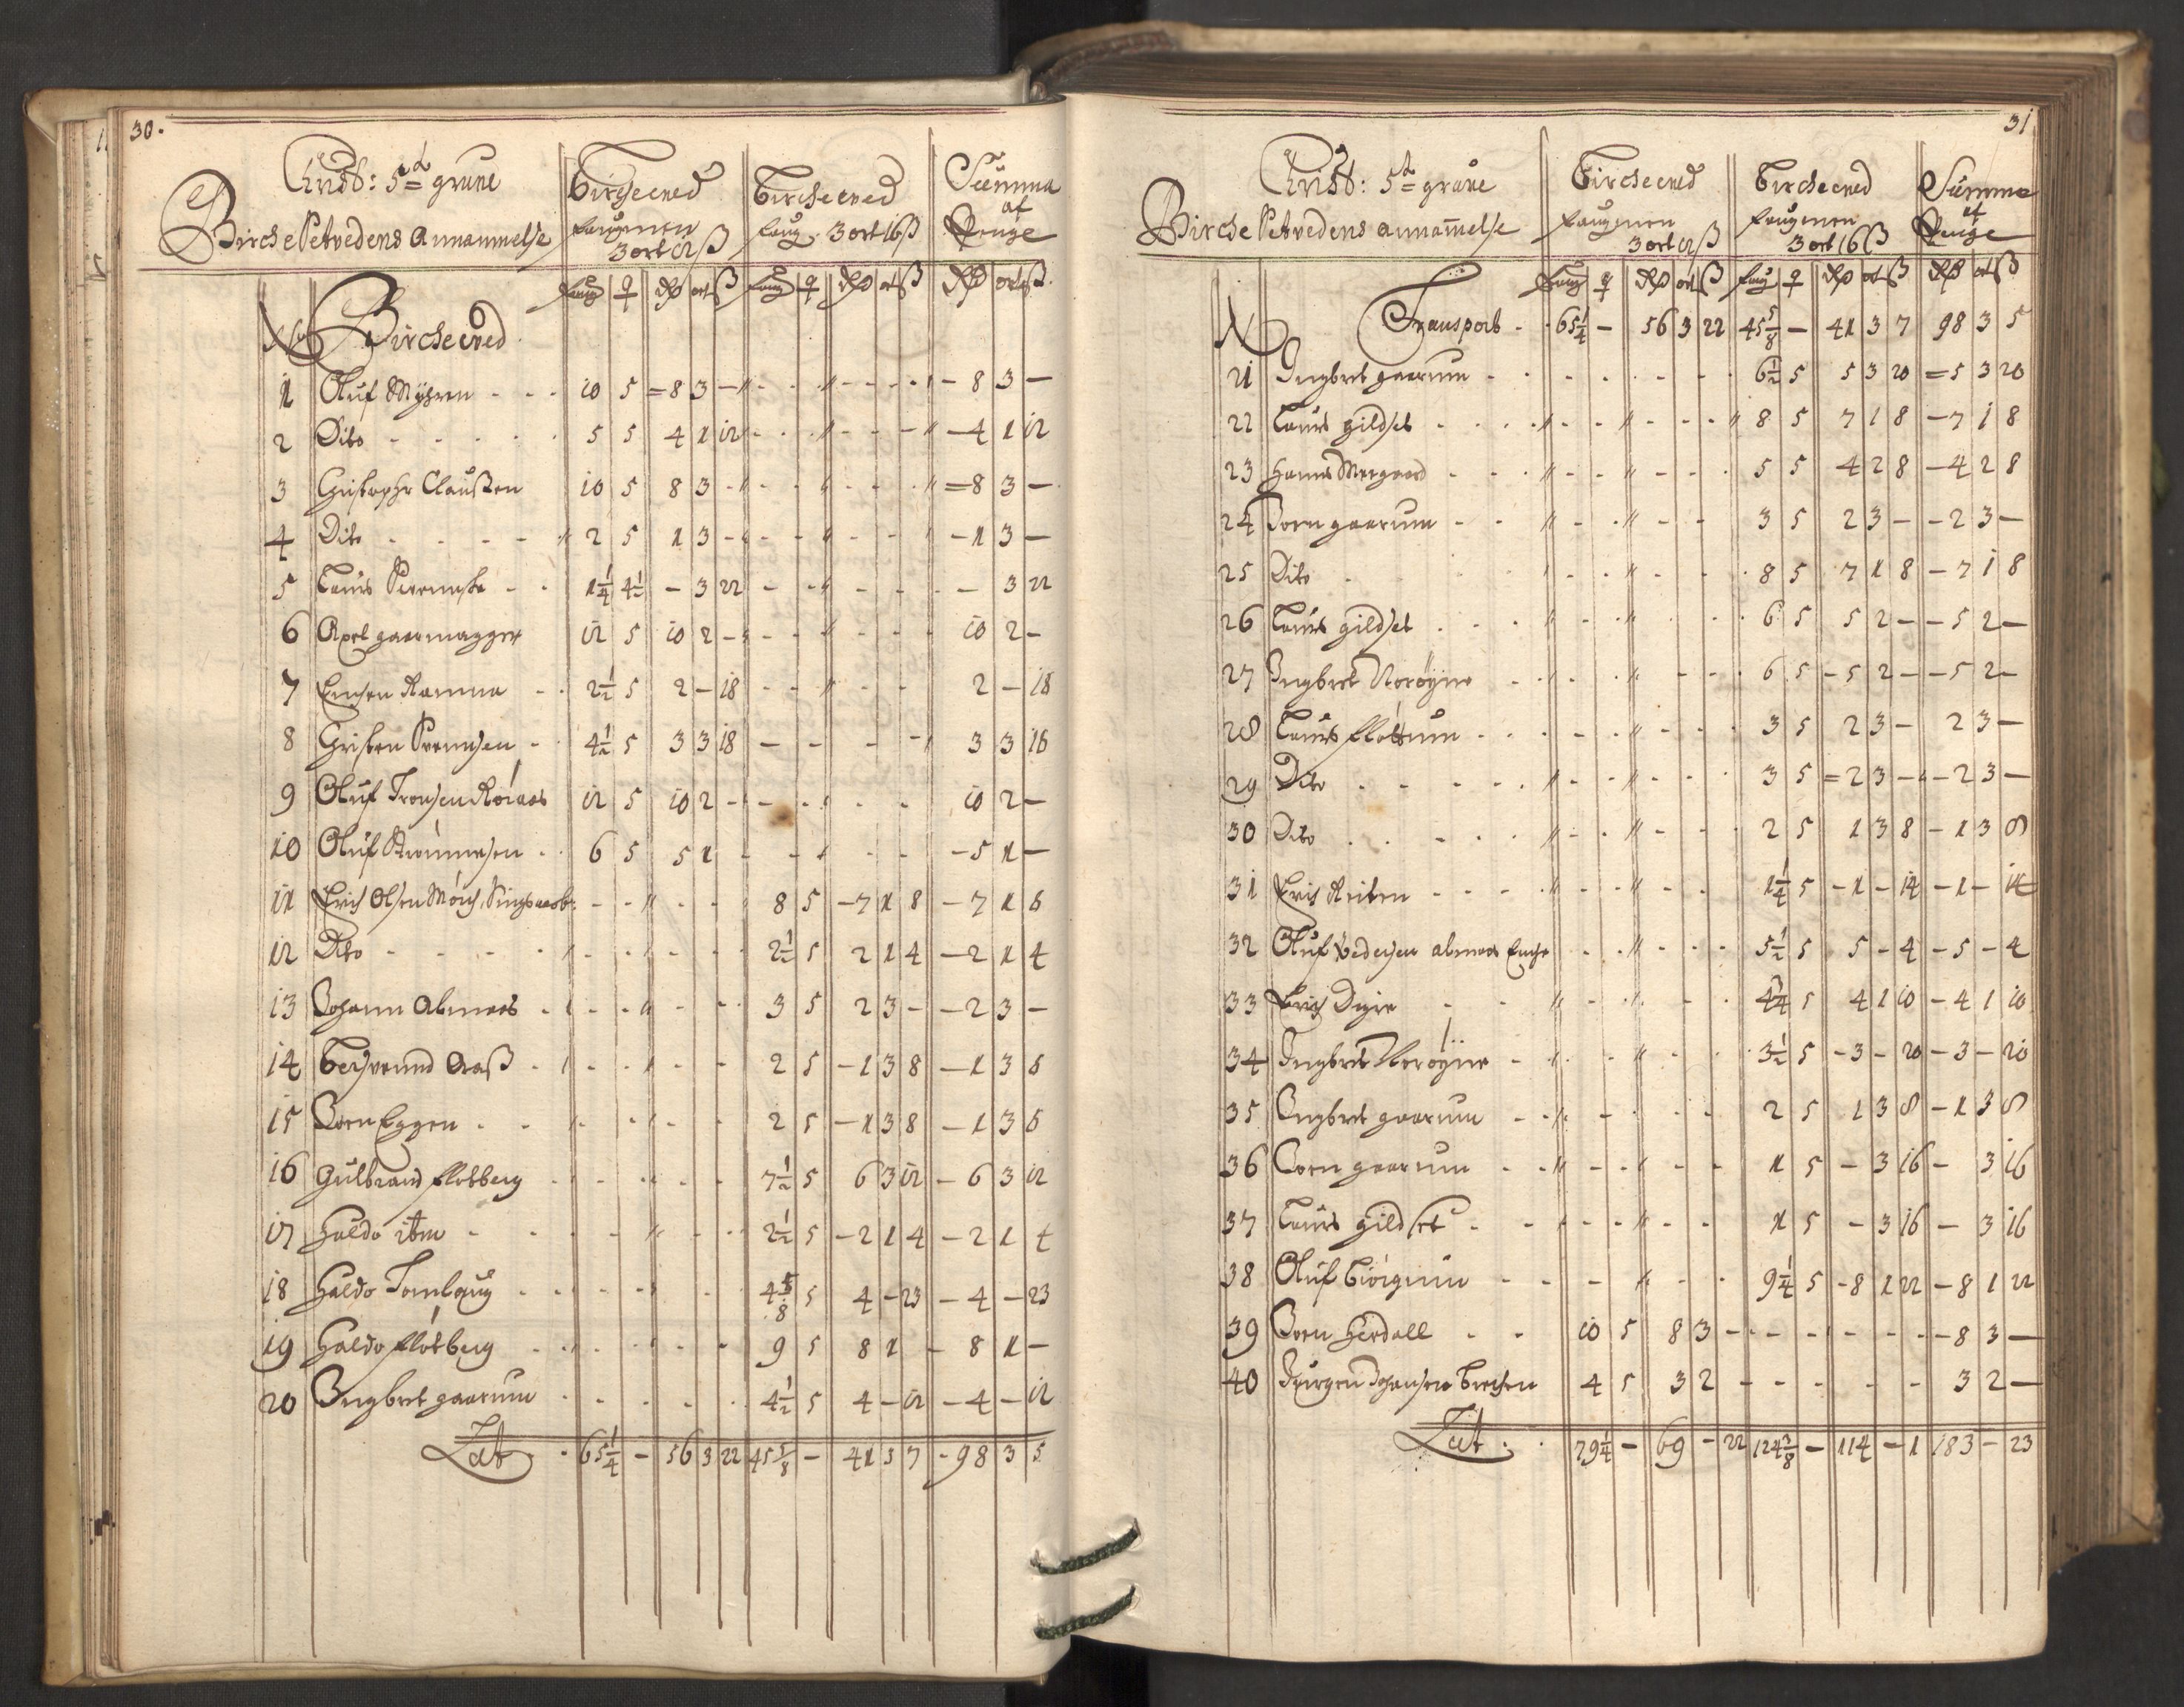 30.
Christ: 5te grube
Birche Setvedens Annammelse
Bircheved faufnen 3 ort 12 ß
Bircheved faufn 3 ort 16 ß
Summa af Penge
faufn q Rdr ort ß faufn q Rdr ort ß Rdr ort ß
No Bircheved
1 Oluf Myhren - - - 10 5 = 8 3 - - 8 3 -
2 Dito - - - - 5 5 4 1 12 - 4 1 12
3 Christopher Clausen 10 5 8 3 - = 8 3 -
4 Dito - - - - 2 5 1 3 - - 1 3 -
5 Laurs - - 1 1/4 4 1/2 - 3 22 - 3 22
6 Axel gaarmagger 12 5 10 2 - 10 2 -
7 Ramma - - 2 1/2 5 2 - 18 2 - 18
8 Christen Svensen - 4 1/2 5 3 3 18 3 3 18
9 Oluf Tronsen Röraas 12 5 10 2 - 10 2 -
10 Oluf - - 6 5 5 1 - - 5 1 -
11 Erich Olsen Mörch, Singsaas - - 8 5 - 7 1 8 - 7 1 8
12 Dito - - - - 2 1/2 5 2 1 4 - 2 1 4
13 Johann Almaas - - 3 5 2 3 - - 2 3 -
14 Aaß - - 2 5 - 1 3 8 - 1 3 8
15 Joen Eggen - - 2 5 - 1 3 8 - 1 3 8
16 Gulbrand Flotberg - 7 1/2 5 6 3 12 - 6 3 12
17 Haldo itm - - - 2 1/2 5 - 2 1 4 - 2 1 4
18 Haldo - - 4 5/8 5 4 - 23 - 4 - 23
19 Haldo Flotberg - - 9 5 8 1 - 8 1 -
20 Ingbret gaarum - - 4 1/2 5 4 - 12 - 4 - 12
Lat - 65 1/4 - 56 3 22 45 5/8 - 41 3 7 - 98 3 5
31
Christ: 5te grube
Birche Setvedens annammelse
Bircheved faufnen 3 ort 12 ß
Bircheved faufnen 3 ort 16 ß
Summa af Penge
faufn q Rdr ort ß faufn q Rdr ort ß Rdr ort ß
No Transport - - 65 1/4 - 56 3 22 45 5/8 - 41 3 7 98 3 5
21 Ingbret gaarum - - 6 1/2 5 5 3 20 = 5 3 20
22 Laurs gildset - - 8 5 7 1 8 - 7 1 8
23 Hans - - 5 5 4 2 8 - 4 2 8
24 Joen gaarum - - 3 5 2 3 - - 2 3 -
25 Dito - - 8 5 7 1 8 - 7 1 8
26 Laurs gildset - - 6 5 5 2 - - 5 2 -
27 Ingbret Noröyne - - 6 5 - 5 2 - - 5 2 -
28 Laurs Flottum - - 3 5 2 3 - 2 3 -
29 Dito - - - 3 5 = 2 3 - - 2 3 -
30 Dito - - - 2 5 1 3 8 - 1 3 8
31 Erich Reiten - - 1 1/4 5 - 1 - 14 - 1 - 14
32 Oluf Pedersen almaas - - 5 1/2 5 5 - 4 - 5 - 4
33 Erich - - 4 3/4 5 4 1 10 - 4 1 10
34 Ingbret Noröyne - - 3 1/2 5 - 3 - 20 - 3 - 20
35 Ingbret gaarum - - 2 5 1 3 8 - 1 3 8
36 Joen gaarum - - 1 5 - 3 16 - 3 16
37 Laurs gildset - - 1 5 - 3 16 - 3 16
38 Oluf - - 9 1/4 5 - 8 1 22 - 8 1 22
39 Joen Herdall - - 10 5 8 3 - - - 8 3 -
40 Jörgen Johansen 4 5 3 2 - - 3 2 -
Lat . . 79 1/4 - 69 - 22 124 3/8 - 114 - 1 183 - 23